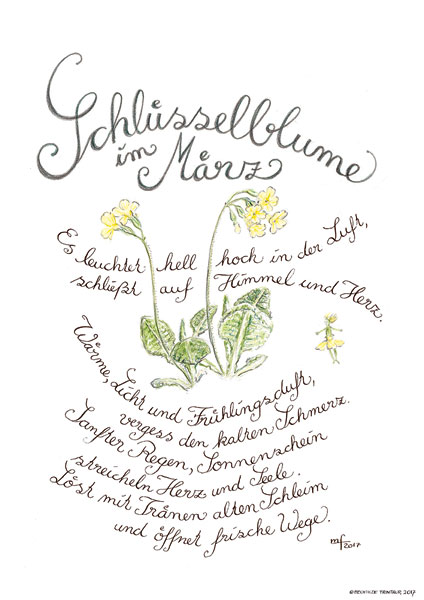 Schlüsselblume
im März
Es leuchtet hell hoch in der Luft,
schließt auf Himmel und Herz.
Wärme, Licht und Frühlingsduft,
vergess den kalten Schmerz.
Sanfter Regen, Sonnenschein
streicheln Herz und Seele.
Löst mit Tränen alten Schleim
und öffnet frische Wege.
maf 2017